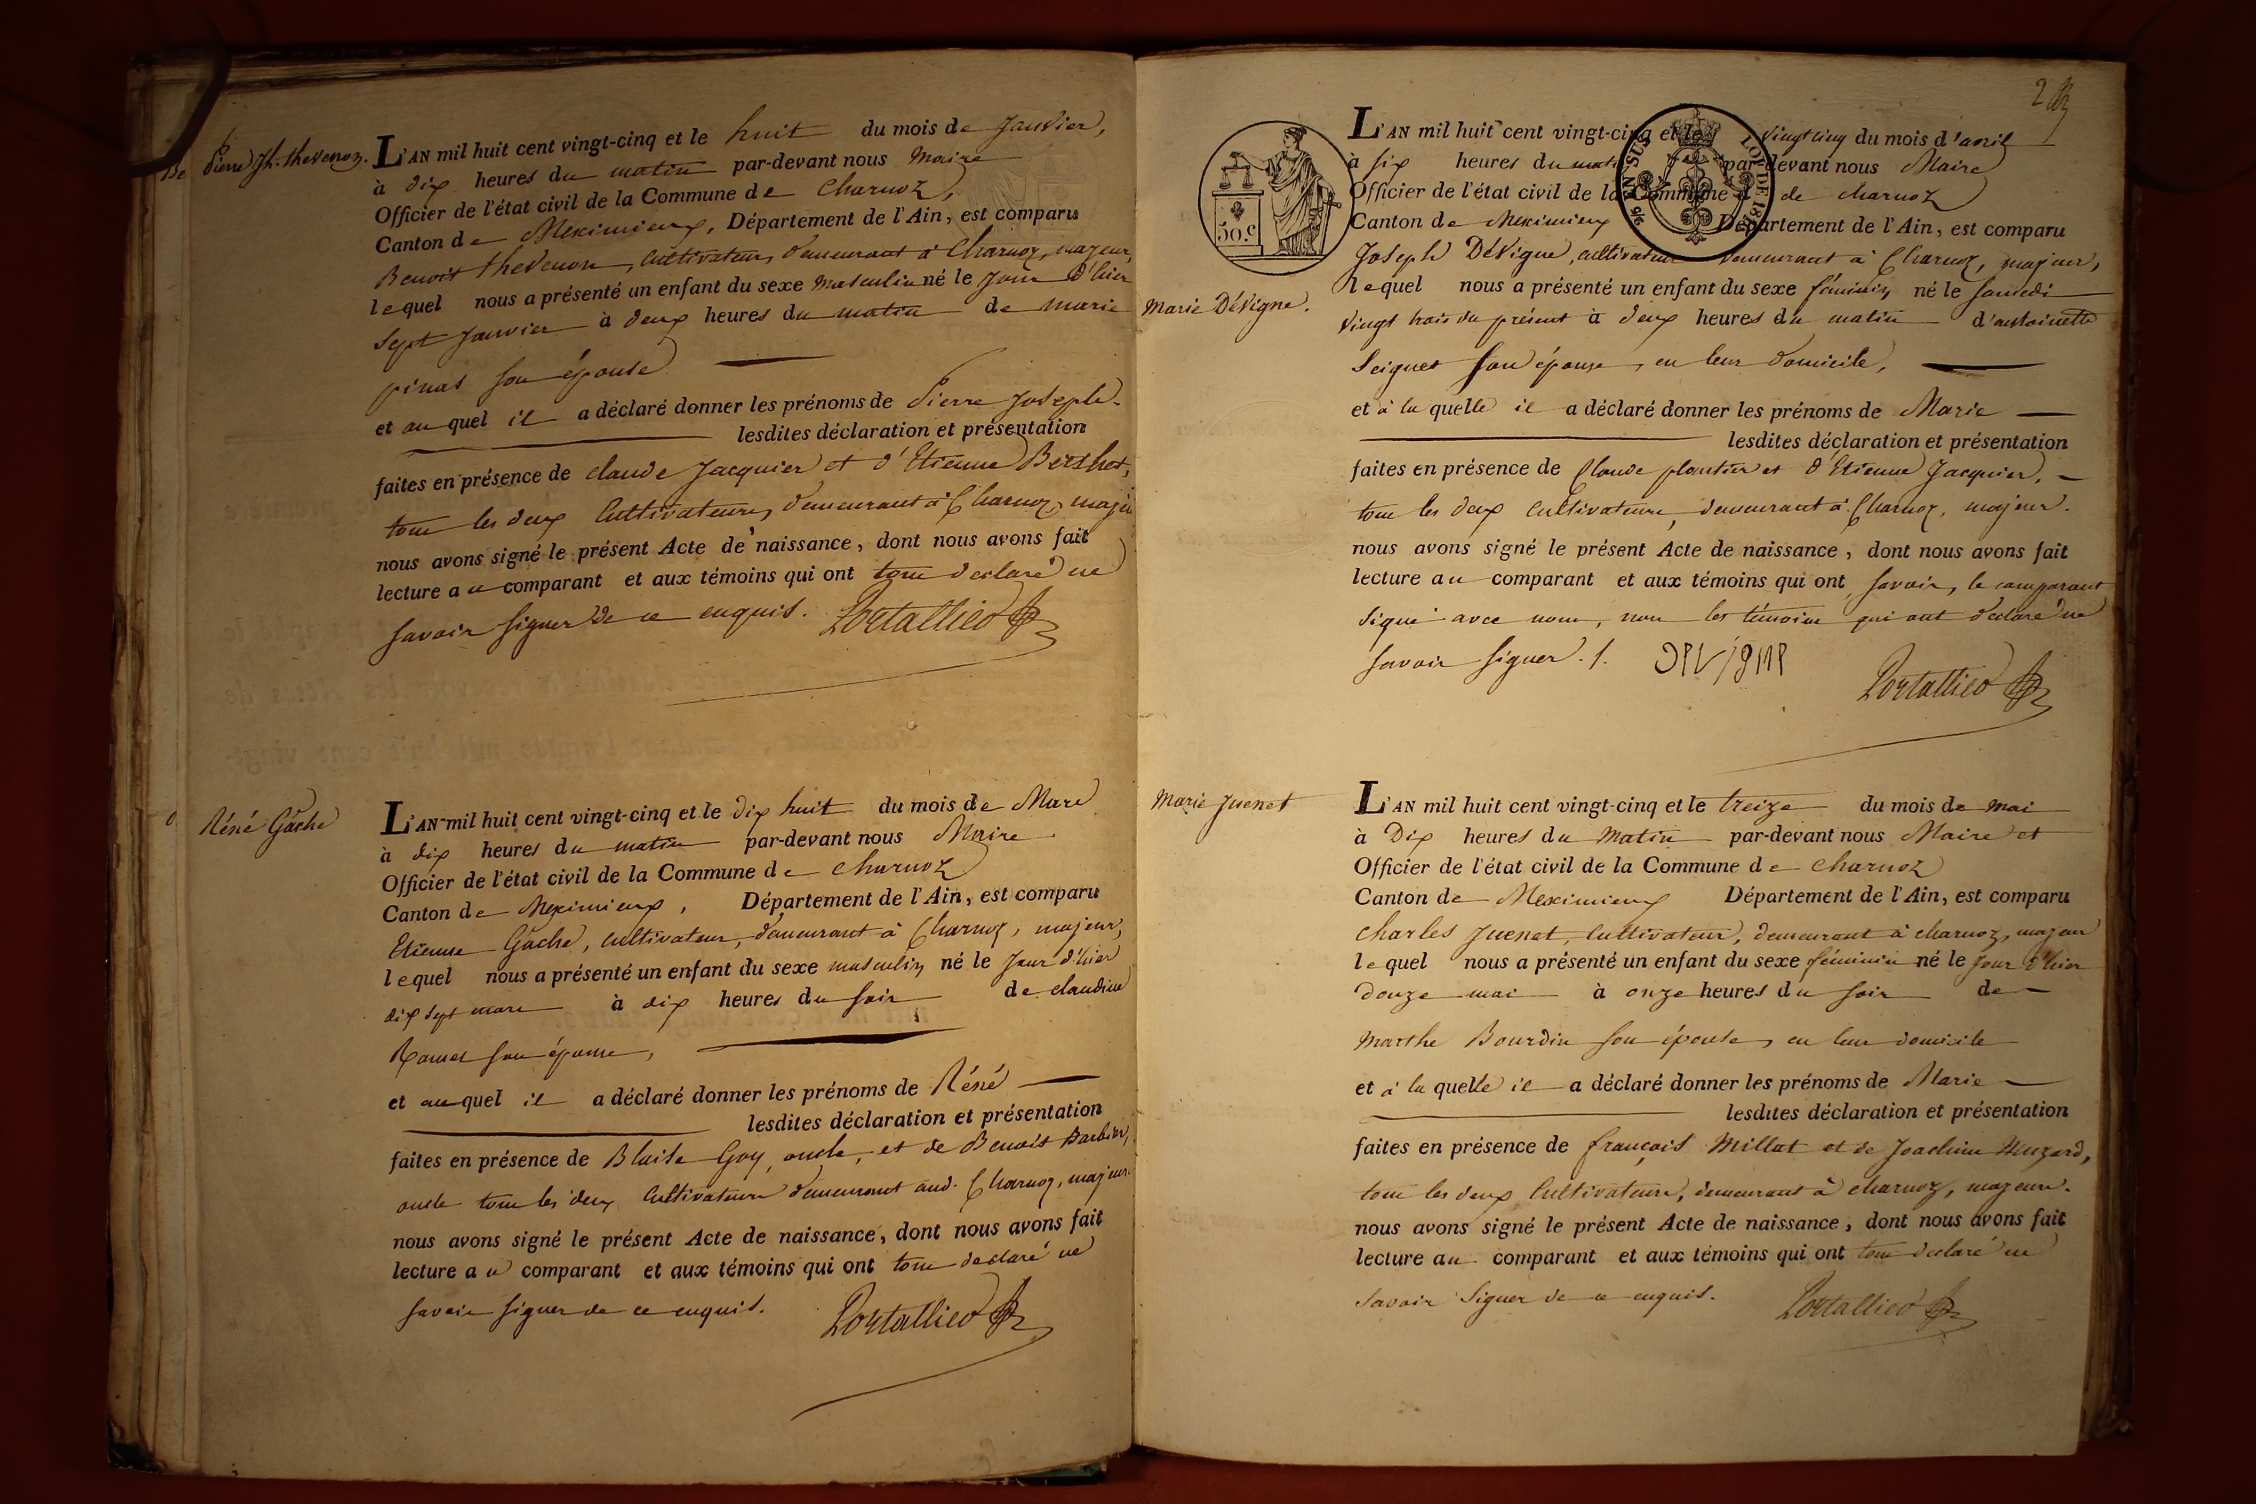 Pierre Jh. thevenon.
L'AN mil huit cent vingt-cinq et le huit du mois de Janvier,
à dix heures du matin par-devant nous Maire
Officier de l'état civil de la Commune de Charnoz,
Canton de Meximieux, Département de l'Ain, est comparu
Benoit thevenon, cultivateur, demeurant à Charnoz, majeur,
lequel nous a présenté un enfant du sexe masculin né le jour d'hier
sept janvier à deux heures du matin de marie
pinat son épouse
et auquel il a déclaré donner les prénoms de Pierre Joseph.
lesdites déclaration et présentation
faites en présence de claude Jacquier et d'Etienne Berthet,
tous les deux Cultivateurs, demeurant à Charnoz, maje
nous avons signé le présent Acte de naissance, dont nous avons fait
lecture au comparant et aux témoins qui ont tous declaré ne
savoir signer de ce enquis. Portallier
Réné Gâche
L'AN mil huit cent vingt-cinq et le dix huit du mois de Mars
à dix heures du matin par-devant nous Maire
Officier de l'état civil de la Commune de Charnoz
Canton de Meximieux, Département de l'Ain, est comparu
Etienne Gâche, cultivateur, demeurant à Charnoz, majeur,
lequel nous a présenté un enfant du sexe masculin né le jour d'hier
dix sept mars à dix heures du soir de claudine
son épouse,
et auquel il a déclaré donner les prénoms de Réné
lesdites déclaration et présentation
faites en présence de Blaise Goy, oncle, et de Benoit Barbier,
oncle tous les deux Cultivateurs demeurant aud. Charnoz, majeurs
nous avons signé le présent Acte de naissance, dont nous avons fait
lecture au comparant et aux témoins qui ont tous declaré ne
savoir signer de ce enquis. Portallier
2
50.c
EN SUS
LOI DE 18
Marie Dévigne.
L'AN mil huit cent vingt-cinq et le vingt cinq du mois d'avril
à six heures du matin par-devant nous Maire
Officier de l'état civil de la Commune de charnoz
Canton de Meximieux Département de l'Ain, est comparu
Joseph Dévigne, cultivateur demeurant à Charnoz, majeur,
lequel nous a présenté un enfant du sexe féminin né le samedi
vingt trois du présent à deux heures du matin d'antoinette
Seignet son épouse, en leur domicile,
et à la quelle il a déclaré donner les prénoms de Marie
lesdites déclaration et présentation
faites en présence de Claude plantier et d'Etienne Jacquier,
tous les deux cultivateurs, demeurant à Charnoz, majeurs.
nous avons signé le présent Acte de naissance, dont nous avons fait
lecture au comparant et aux témoins qui ont, savoir, le comparant
signé avec nous, non les témoins qui ont declaré ne
savoir signer. /. Devigne
Portallier
Marie Juenet
L'AN mil huit cent vingt-cinq et le treize du mois de mai
à Dix heures du Matin par-devant nous Maire et
Officier de l'état civil de la Commune de Charnoz
Canton de Meximieux Département de l'Ain, est comparu
Charles Juenet, Cultivateur, demeurant à charnoz, majeur
lequel nous a présenté un enfant du sexe féminin né le jour d'hier
douze mai à onze heures du soir de
Marthe Bourdin son épouse, en leur domicile
et à la quelle il a déclaré donner les prénoms de Marie
lesdites déclaration et présentation
faites en présence de françois Millat et de Joachim Huzard,
tous les deux Cultivateurs, demeurant à charnoz, majeurs.
nous avons signé le présent Acte de naissance, dont nous avons fait
lecture au comparant et aux témoins qui ont tous declaré ne
savoir signer de ce enquis. Portallier